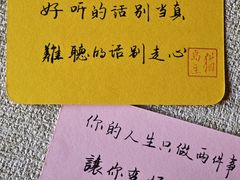 好听的话别当真
難聽的话别走心
你的人生只做两件事
讓你